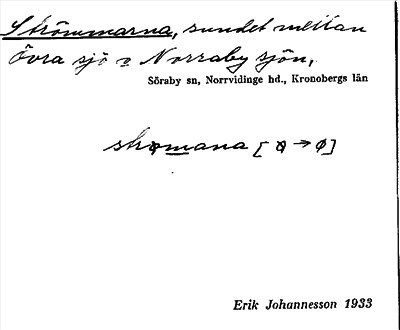 Strömmarna, sundet mellan
Övra sjö o Norraby sjön,
Söraby sn, Norrvidinge hd., Kronobergs län
Erik Johannesson 1933